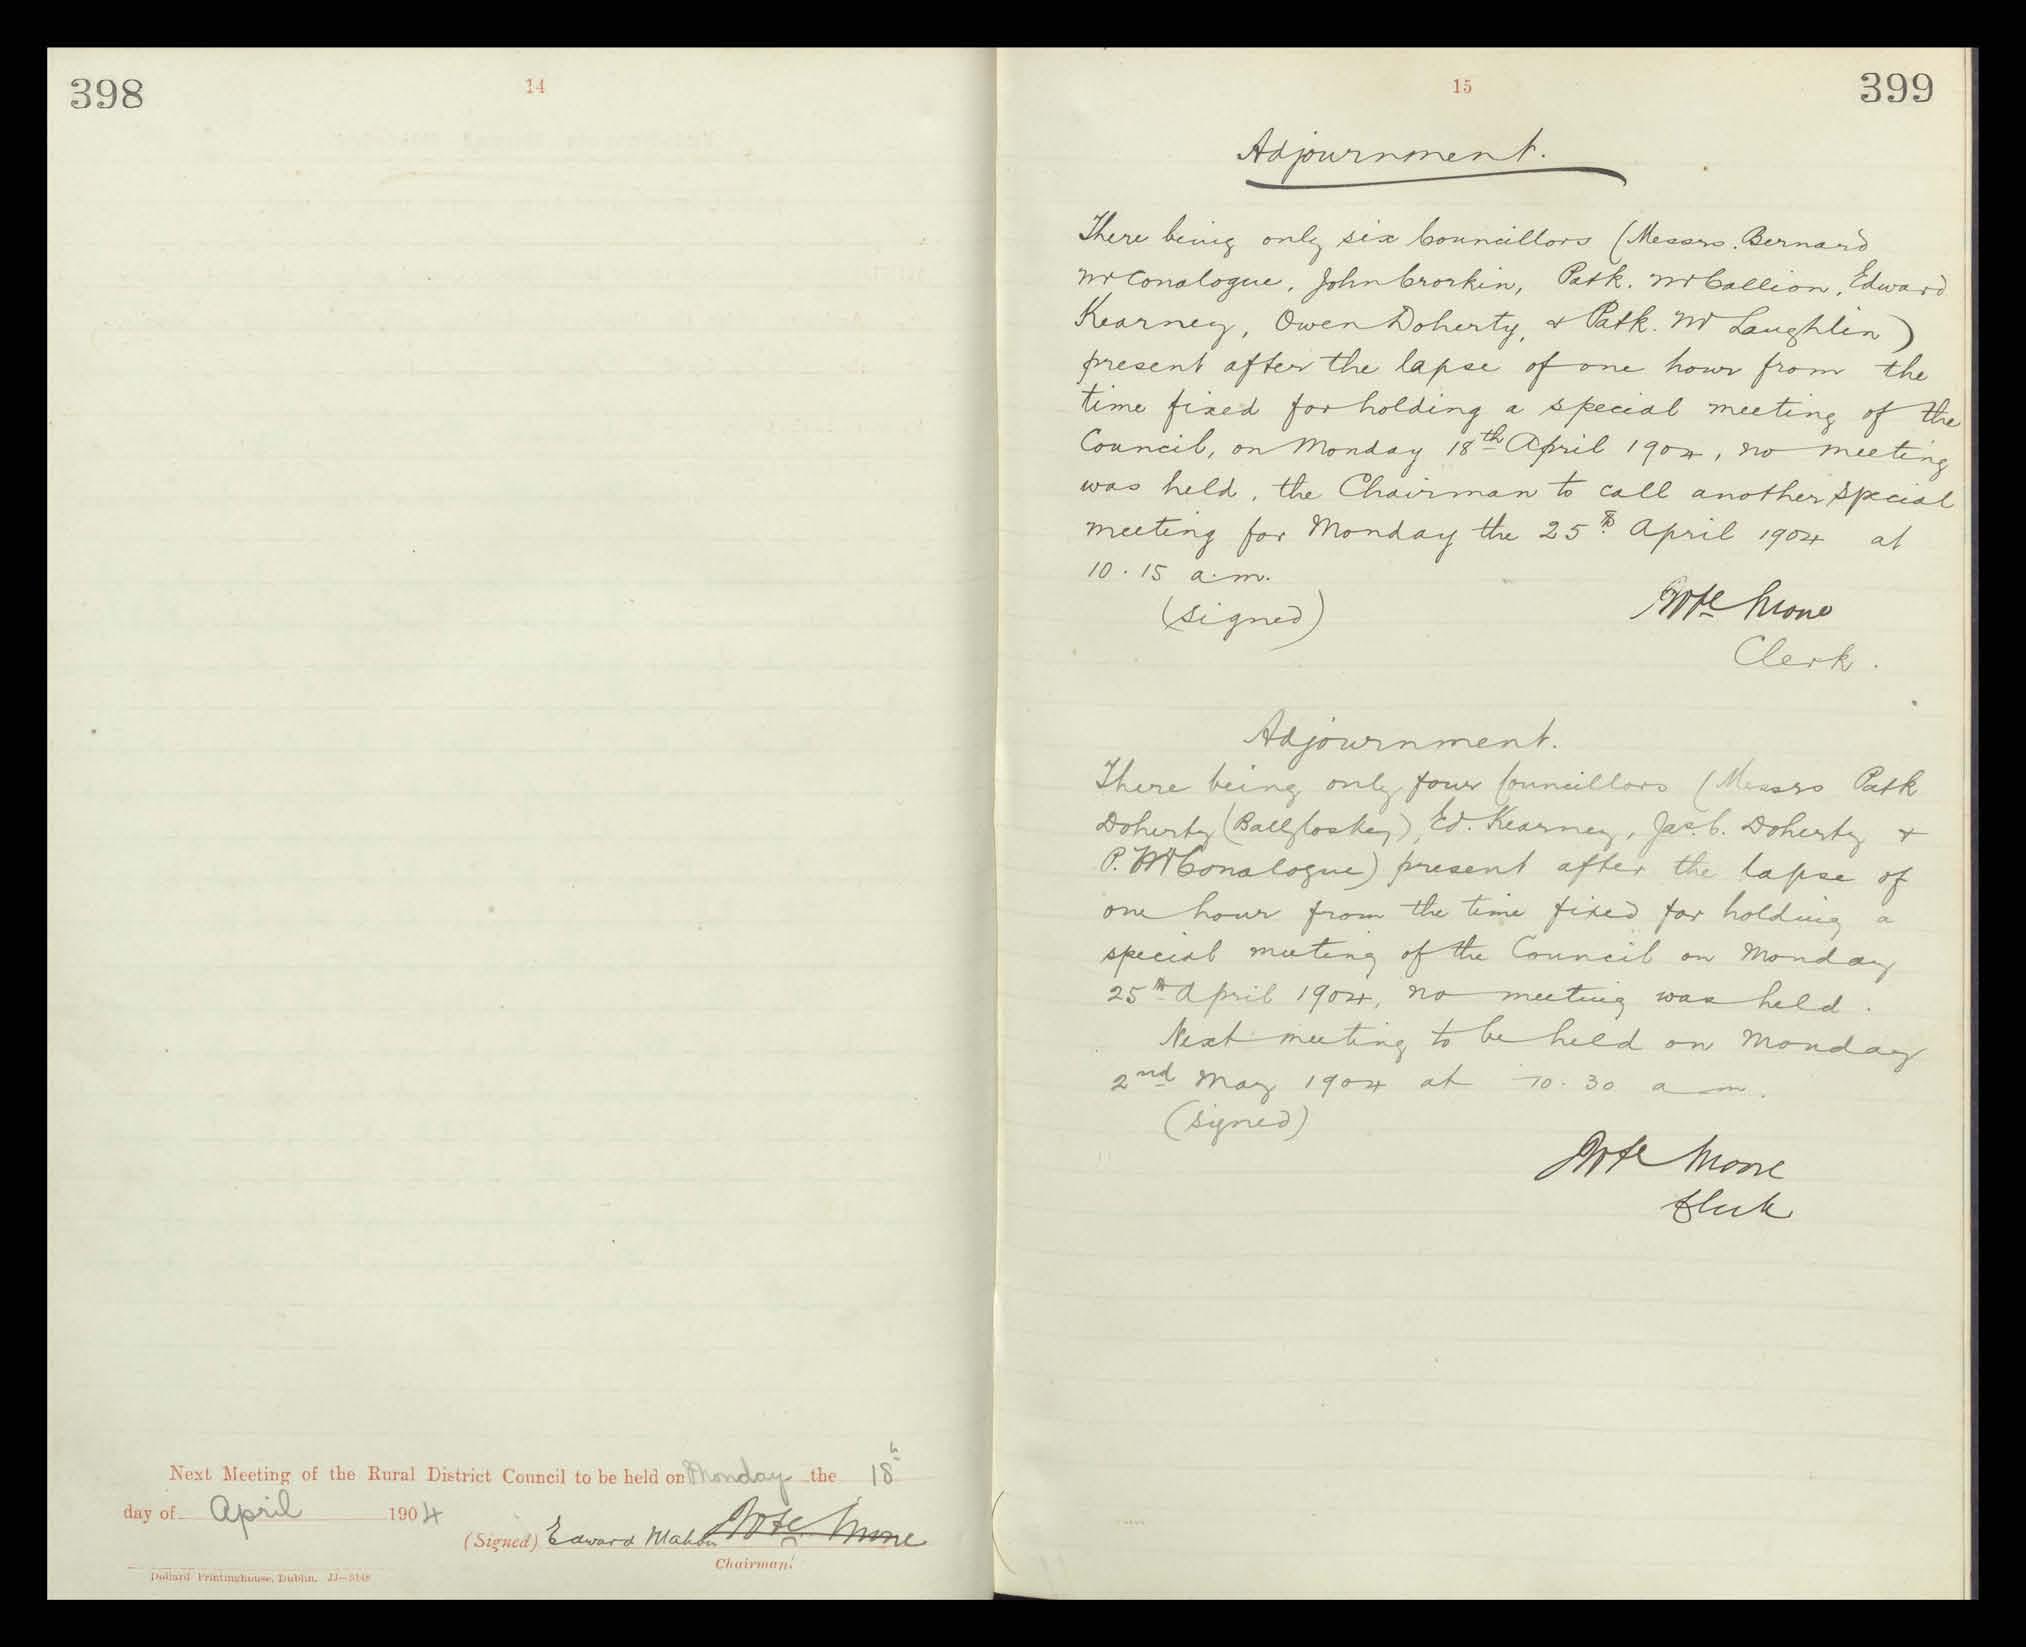 398
14
Next Meeting of the Rural District Council to be held on Monday the 18th
day of April 1904
(Signed) Edward Mahon
Chairman.
Dollard Printinghouse, Dublin.
15
399
Adjournment.
There being only six Councillors (Messrs. Bernard
McConalogue, John Crorkin, Patk. McCallion, Edward
Kearney, Owen Doherty, & Patk. McLaughlin)
present after the lapse of one hour from the
time fixed for holding a special meeting of the
Council, on Monday 18th April 1904, no meeting
was held, the Chairman to call another special
meeting for Monday the 25th April 1904 at
10.15 a.m.
(signed)
Moore
Clerk.
Adjournment.
There being only four Councillors (Messrs Patk
Doherty (Ballyloskey), Ed. Kearney, Jas. C. Doherty &
P. McConalogue) present after the lapse of
one hour from the time fixed for holding a
special meeting of the Council on Monday
25th April 1904, no meeting was held.
Next meeting to be held on Monday
2nd May 1904 at 10.30 a m.
(signed)
Moore
Clerk